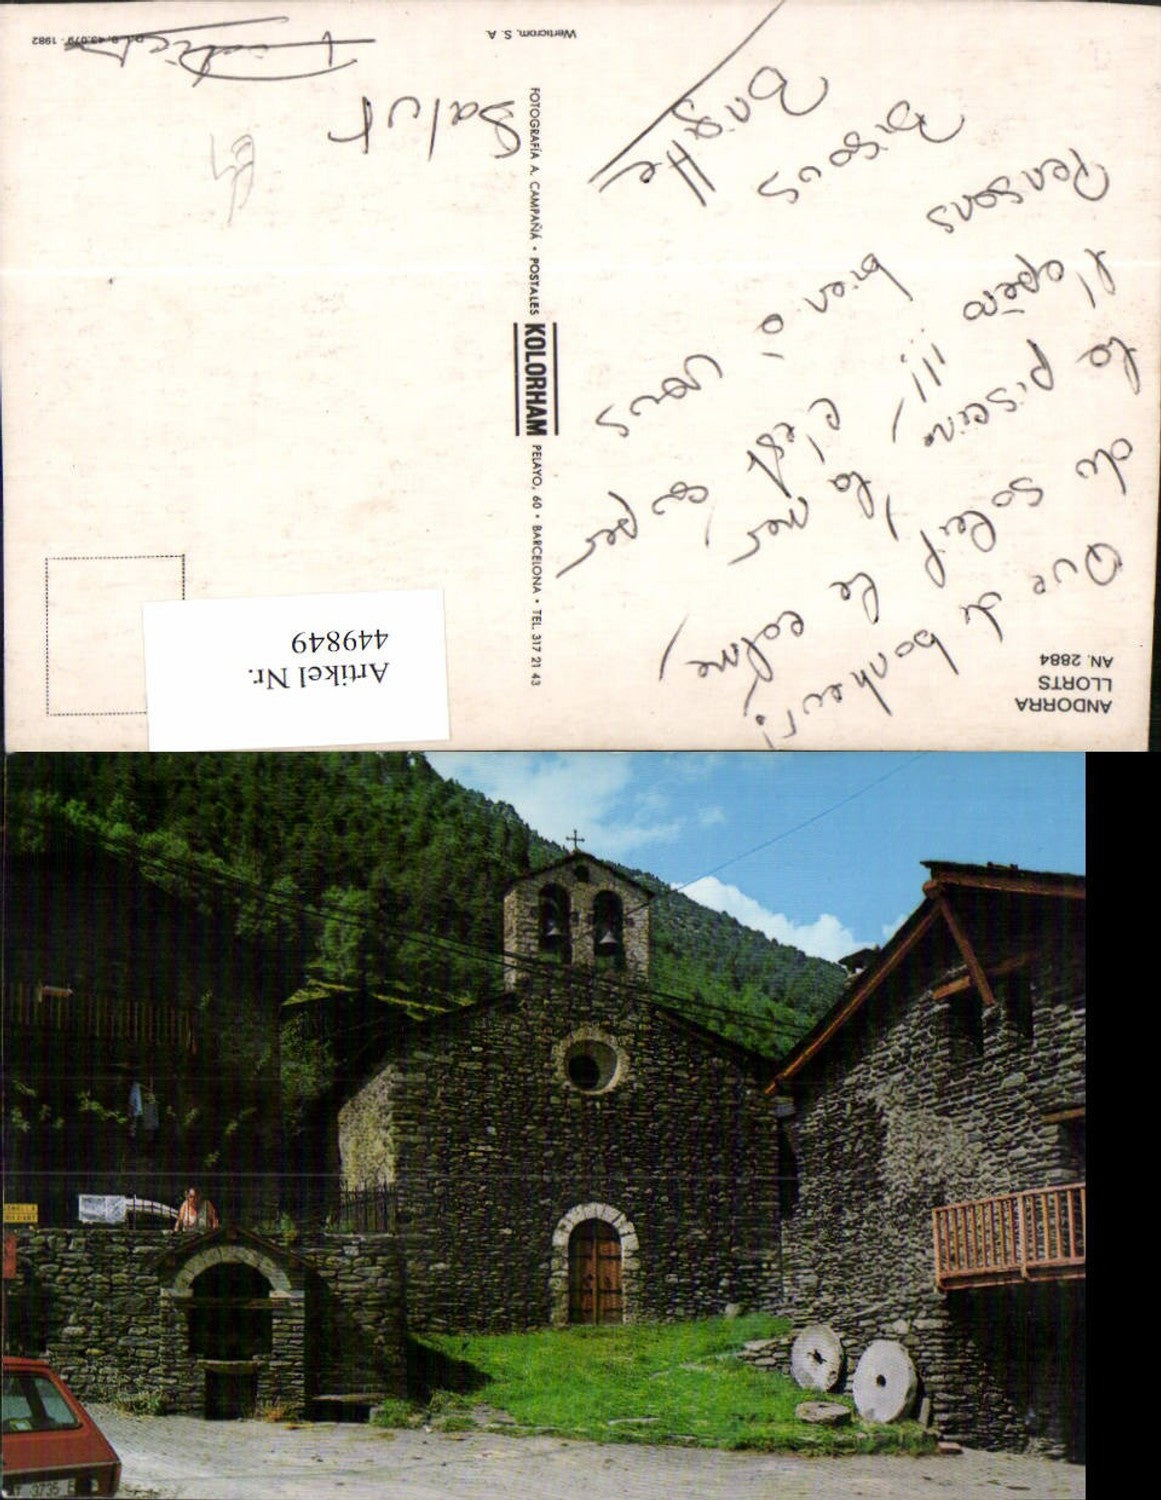 ANDORRA
LLORTS
AN. 2884
Que du bonheur!
du soleil, le calme,
la piscine, la mer
l'apéro !!! c'est ça
Pensons bien à vous
Bisous
Brigitte
Salut
FOTOGRAFÍA A. CAMPAÑÁ • POSTALES KOLORHAM PELAYO, 60 • BARCELONA • TEL. 317 21 43
Werticrom, S. A.
43.079 - 1982
Artikel Nr.
449849
3735